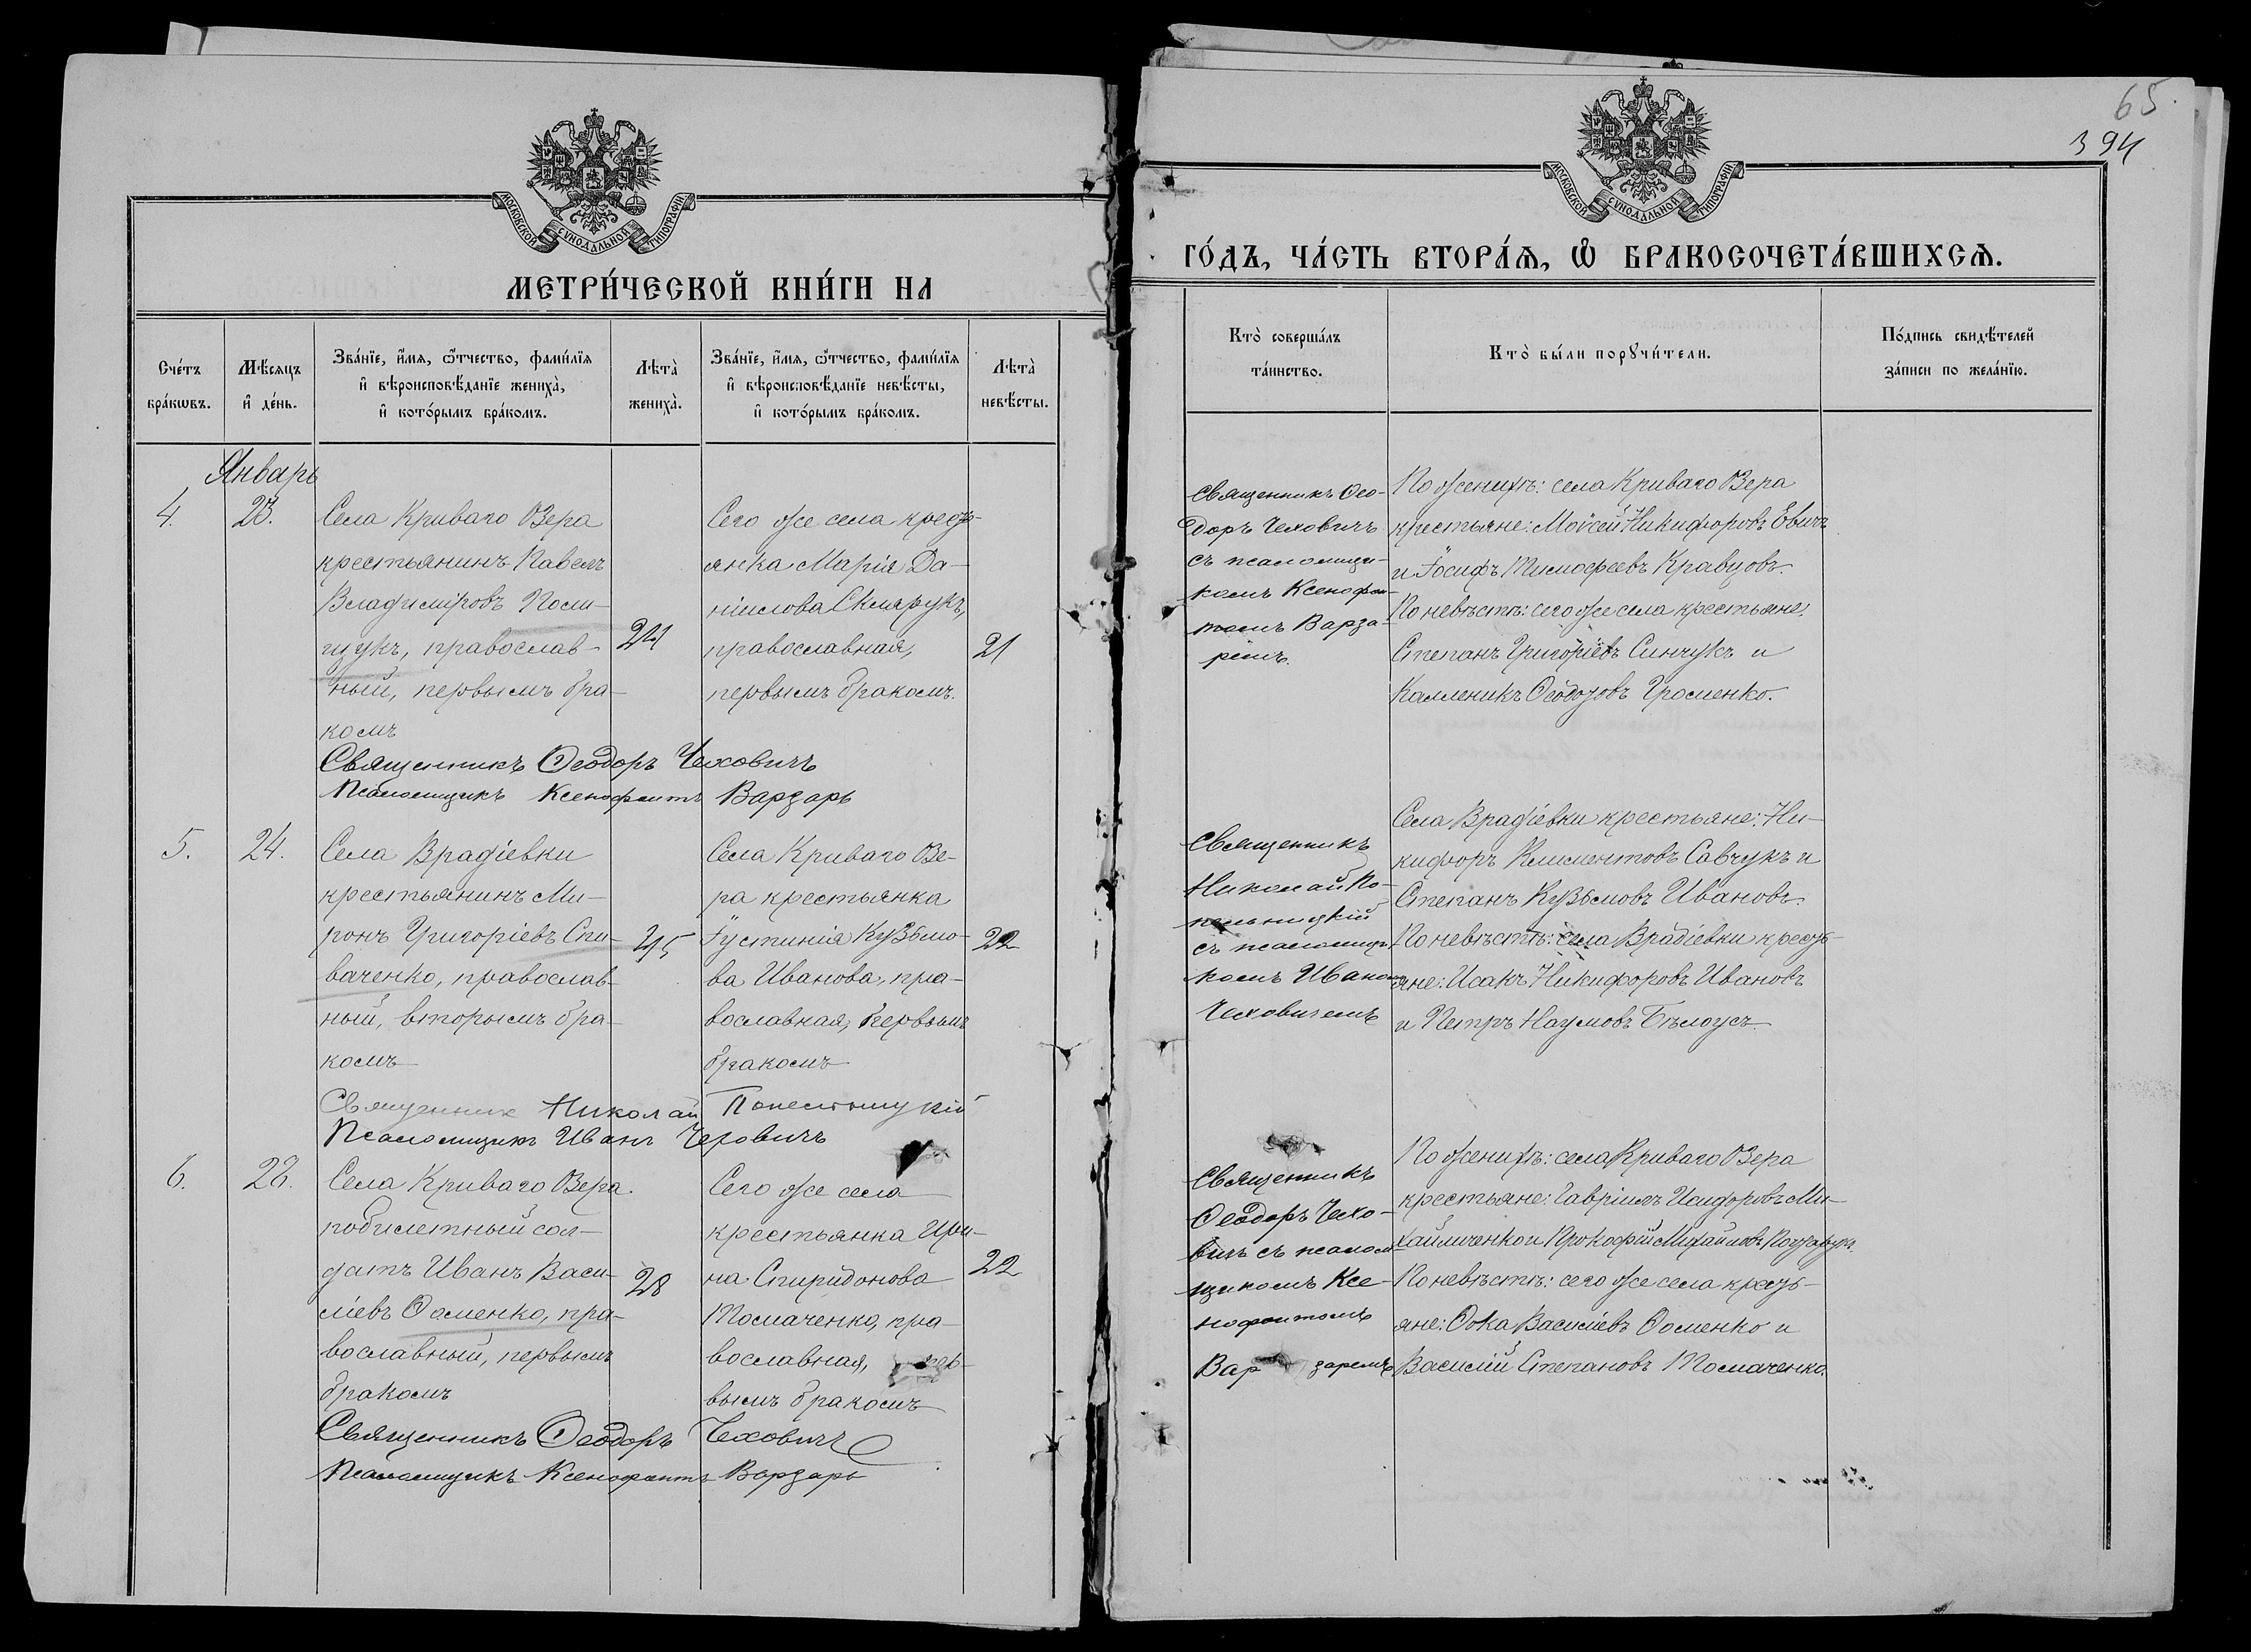 65.
394
МОСКОВСКОЙ СѴНОДАЛЬНОЙ ТИПОГРАФІИ
МЕТРИ́ЧЕСКОЙ КНИ́ГИ НА
Сче́тъ бра́кѡвъ.
Мѣ́сяцъ и҆ де́нь.
Зва́нїе, и҆́мѧ, ѻ҆́тчество, фами́лїѧ
и҆ вѣроисповѣ́данїе жениха̀,
и҆ кото́рымъ бра́комъ.
Лѣта̀ жениха̀.
Зва́нїе, и҆́мѧ, ѻ҆́тчество, фами́лїѧ
и҆ вѣроисповѣ́данїе невѣ́сты,
и҆ кото́рымъ бра́комъ.
Лѣта̀ невѣ́сты.
Январь
4.
23.
Села Криваго Озера
крестьянинъ Павелъ
Владиміровъ Поли-
щукъ, православ-
ный, первымъ бра-
комъ
24
Сего же села кресть-
янка Марія Да-
ніилова Склярукъ,
православная,
первымъ бракомъ.
21
Священникъ Ѳеодоръ Чеховичъ
Псаломщикъ Ксенофонтъ Варзарь
5.
24.
Села Врадіевки
крестьянинъ Ми-
ронъ Григоріевъ Спи-
ваченко, православ-
ный, вторымъ бра-
комъ
45
Села Криваго Озе-
ра крестьянка
Іустинія Кузьмо-
ва Иванова, пра-
вославная, первымъ
бракомъ
22
Священник Николай
Псаломщикъ Иванъ Чеховичъ
6.
28.
Села Криваго Озера
побилетный сол-
датъ Иванъ Васи-
ліевъ Ѳоменко, пра-
вославный, первымъ
бракомъ
28
Сего же села
крестьянка Ири-
на Спиридонова
Толмаченко, пра-
вославная, пер-
вымъ бракомъ
22
Священникъ Ѳеодоръ Чеховичъ
Псаломщикъ Ксенофонтъ Варзарь
МОСКОВСКОЙ СѴНОДАЛЬНОЙ ТИПОГРАФІИ
ГО́ДЪ, ЧА́СТЬ ВТОРА́Ѧ, Ѡ҆ БРАКОСОЧЕТА́ВШИХСѦ.
Кто̀ соверша́лъ
та́инство.
Кто̀ бы́ли порꙋчи́тели.
По́дпись свидѣ́телей
за́писи по жела́нїю.
Священникъ Ѳео-
доръ Чеховичъ
съ псаломщи-
комъ Ксенофон-
томъ Варза-
remъ.
По женихѣ: села Криваго Озера
крестьяне: Моисей Никифоровъ
и Іосифъ Тимофеевъ Кравцовъ.
По невѣстѣ: сего же села крестьяне:
Степанъ Григоріевъ Синчукъ и
Калленикъ Ѳеодозовъ Громенко.
Священникъ
Николай
съ псаломщи-
комъ Иваномъ
Чеховичемъ
Села Врадіевки крестьяне: Ни-
кифоръ Климентовъ Савчукъ и
Степанъ Кузьмовъ Ивановъ.
По невѣстѣ: села Врадіевки кресть-
яне: Исакъ Никифоровъ Ивановъ
и Петръ Наумовъ Бѣлоусъ
Священникъ
Ѳеодоръ Чехо-
вичъ съ псалом-
щикомъ Ксе-
нофонтомъ
Варзаремъ
По женихѣ: села Криваго Озера
крестьяне: Гавріилъ Исидоровъ Ми-
хайличенко и Прокофій Михайловъ
По невѣстѣ: сего же села кресть-
яне: Ѳока Василіевъ Ѳоменко и
Василій Степановъ Толмаченко.